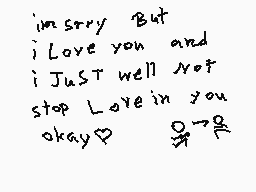 im srry But
i Love you and
i JuST well NoT
stop Love in you
okay♡